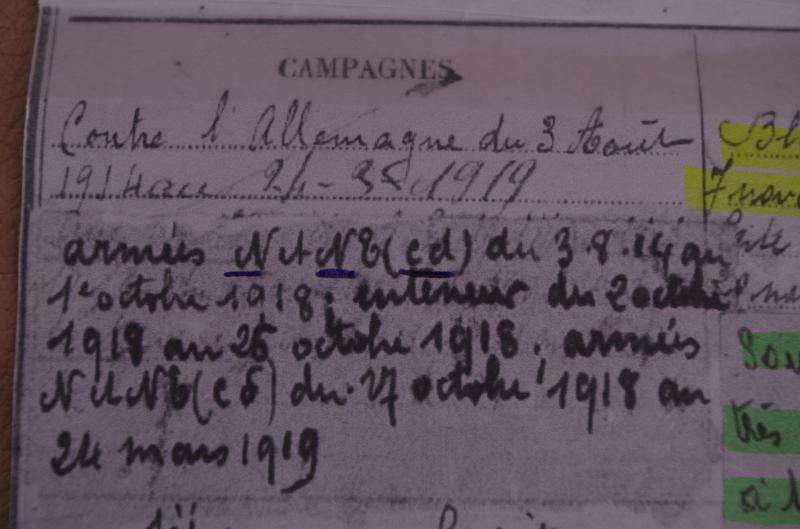 CAMPAGNES
Contre l'Allemagne du 3 Août
1914 au 24-3-1919
armées N et NE (cd) du 3.8.14 au
1er octobre 1918; intérieur du 2 octobre
1918 au 26 octobre 1918. armées
N et NE (cd) du 27 octobre 1918 au
24 mars 1919
Bl
7 nov
très